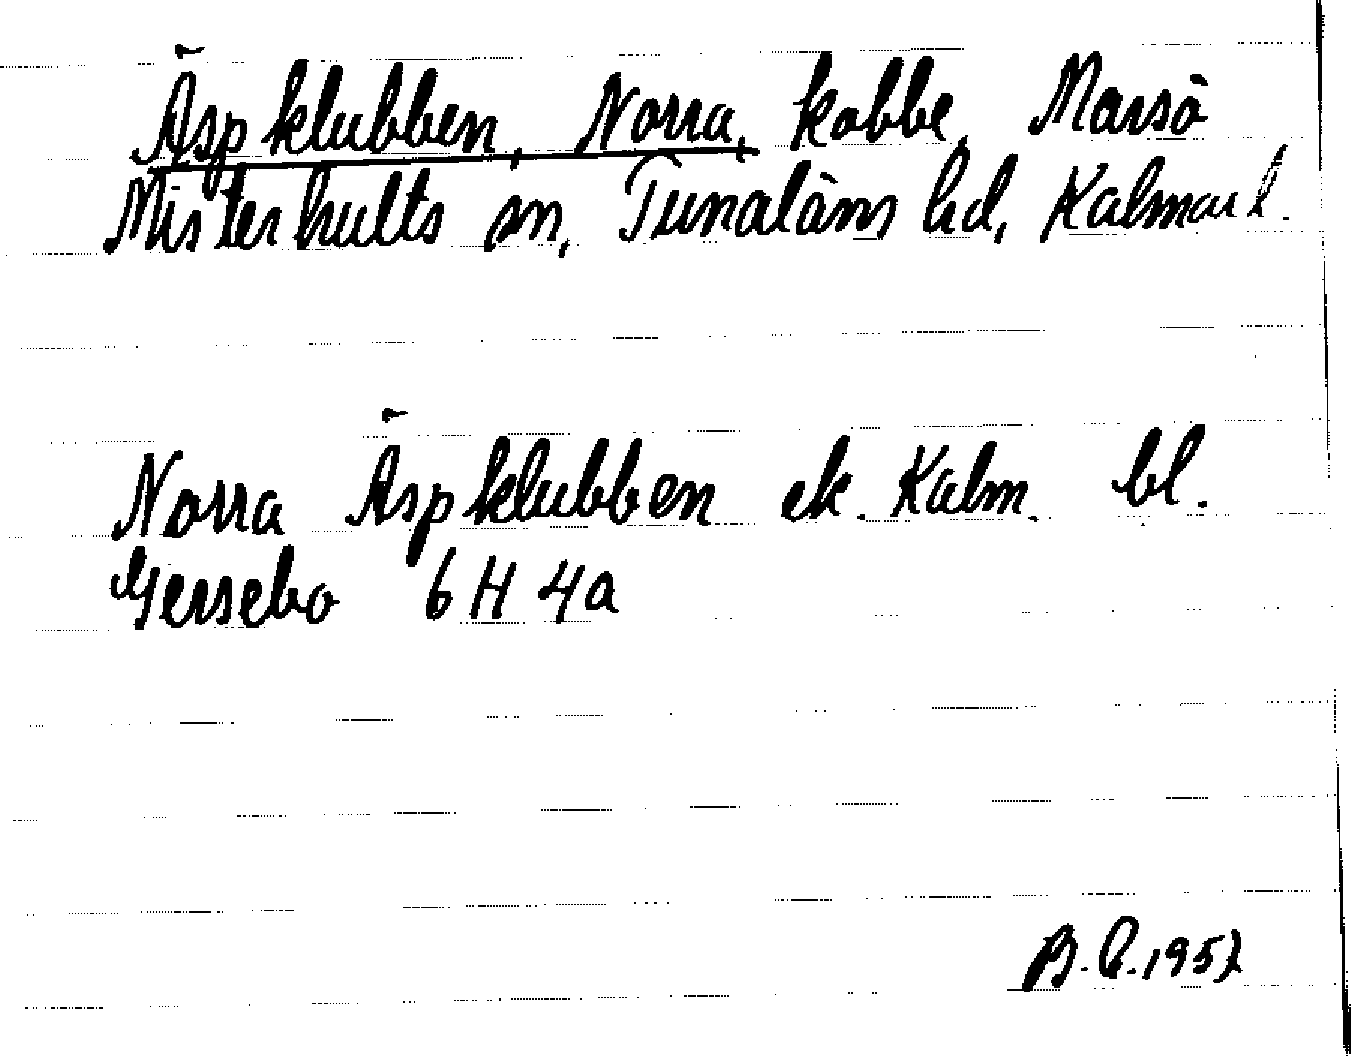 Äspklubben, Norra, kobbe, Marsö
Misterhults sn, Tunaläns hd, Kalmar l.
Norra Äspklubben ek. Kalm. bl.
Gersebo 6H 4a
B.L.1952